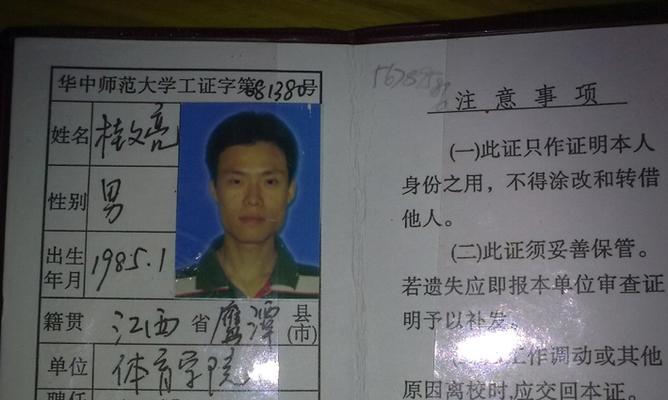 华中师范大学工证字第681380号
姓名 桂文亮
性别 男
出生年月 1985.1
籍贯 江西省鹰潭县(市)
单位 体育学院
聘任
注意事项
(一)此证只作证明本人
身份之用，不得涂改和转借
他人。
(二)此证须妥善保管。
若遗失应即报本单位审查证
明予以补发。
工作调动或其他
原因离校时,应交回本证。